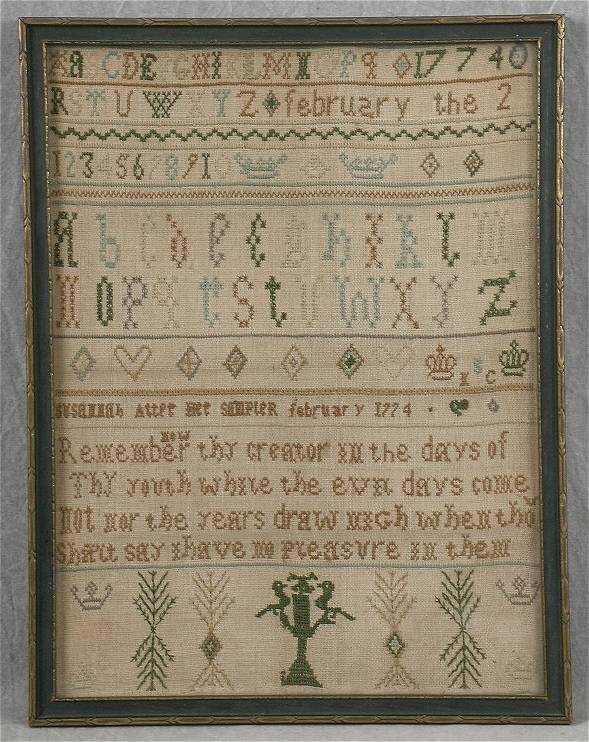 A B C D E G H I K L M N O P q 1774
R S T U W X Y Z february the 2
12345678910
A b C d e E g h I k l m
n o p q t S t U W X Y Z
I S C
susannah Atter her SAmpleR february 1774
now
Remember thy creator in the days of
Thy youth while the evn days come
Not nor the years draw nigh when thou
shalt say i have no pleasure in them